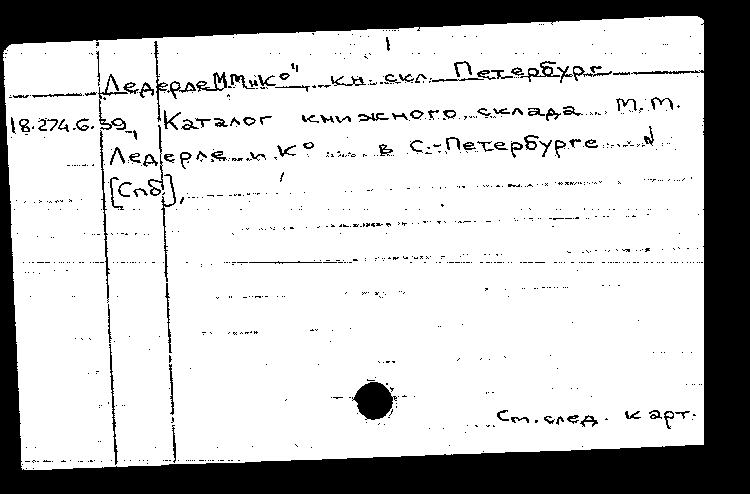 Ледерле ММ и К°", кн. скл. Петербург
18.274.6.39, Каталог книжного склада М.М.
Ледерле и К° ... в С.-Петербурге
[Спб],
Ст. след. карт.